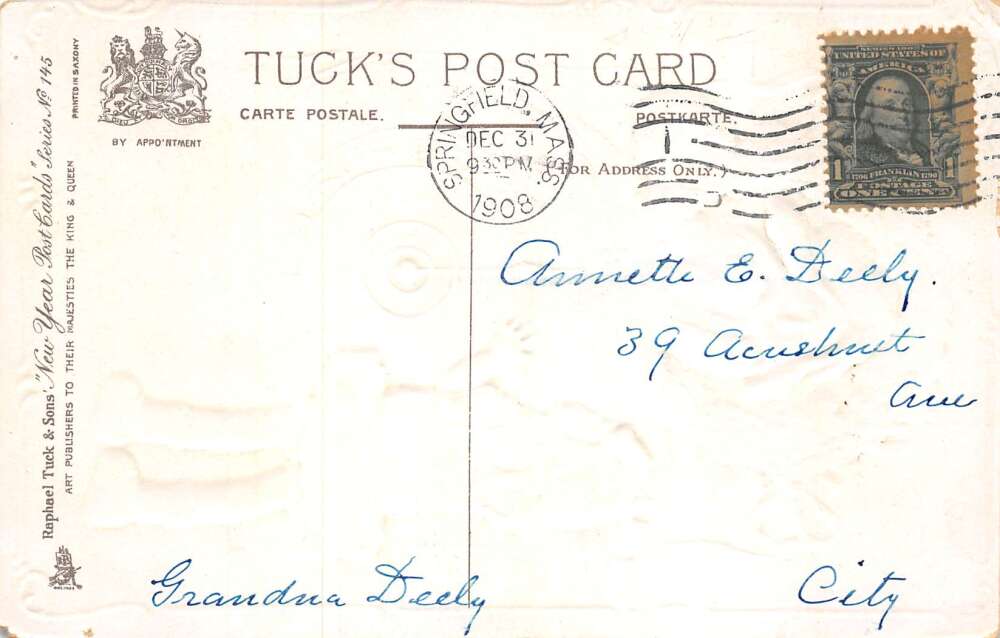 TUCK'S POST CARD
CARTE POSTALE.
POSTKARTE.
(FOR ADDRESS ONLY.)
BY APPOINTMENT
PRINTED IN SAXONY
Raphael Tuck & Sons' "New Year Post Cards" Series No 145
ART PUBLISHERS TO THEIR MAJESTIES THE KING & QUEEN
SPRINGFIELD, MASS.
DEC 31
9 30 PM
1908
SERIES 1902
UNITED STATES OF
AMERICA
1706 FRANKLIN 1790
1 POSTAGE 1
ONE CENT
Annette E. Deely.
39 Acushnet
Ave
City
Grandna Deely